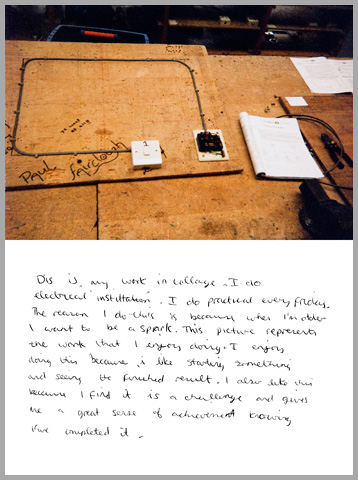 1
Paul Fairclough
Dis is my work in collage. I do
electrical instillation. I do practical every friday.
The reason I do this is because when I'm older
I want to be a spark. This picture represents
the work that I enjoy doing. I enjoy
doing this because i like starting something
and seeing the finished result. I also like this
because I find it is a challenge and gives
me a great sense of achievement knowing
I've completed it.